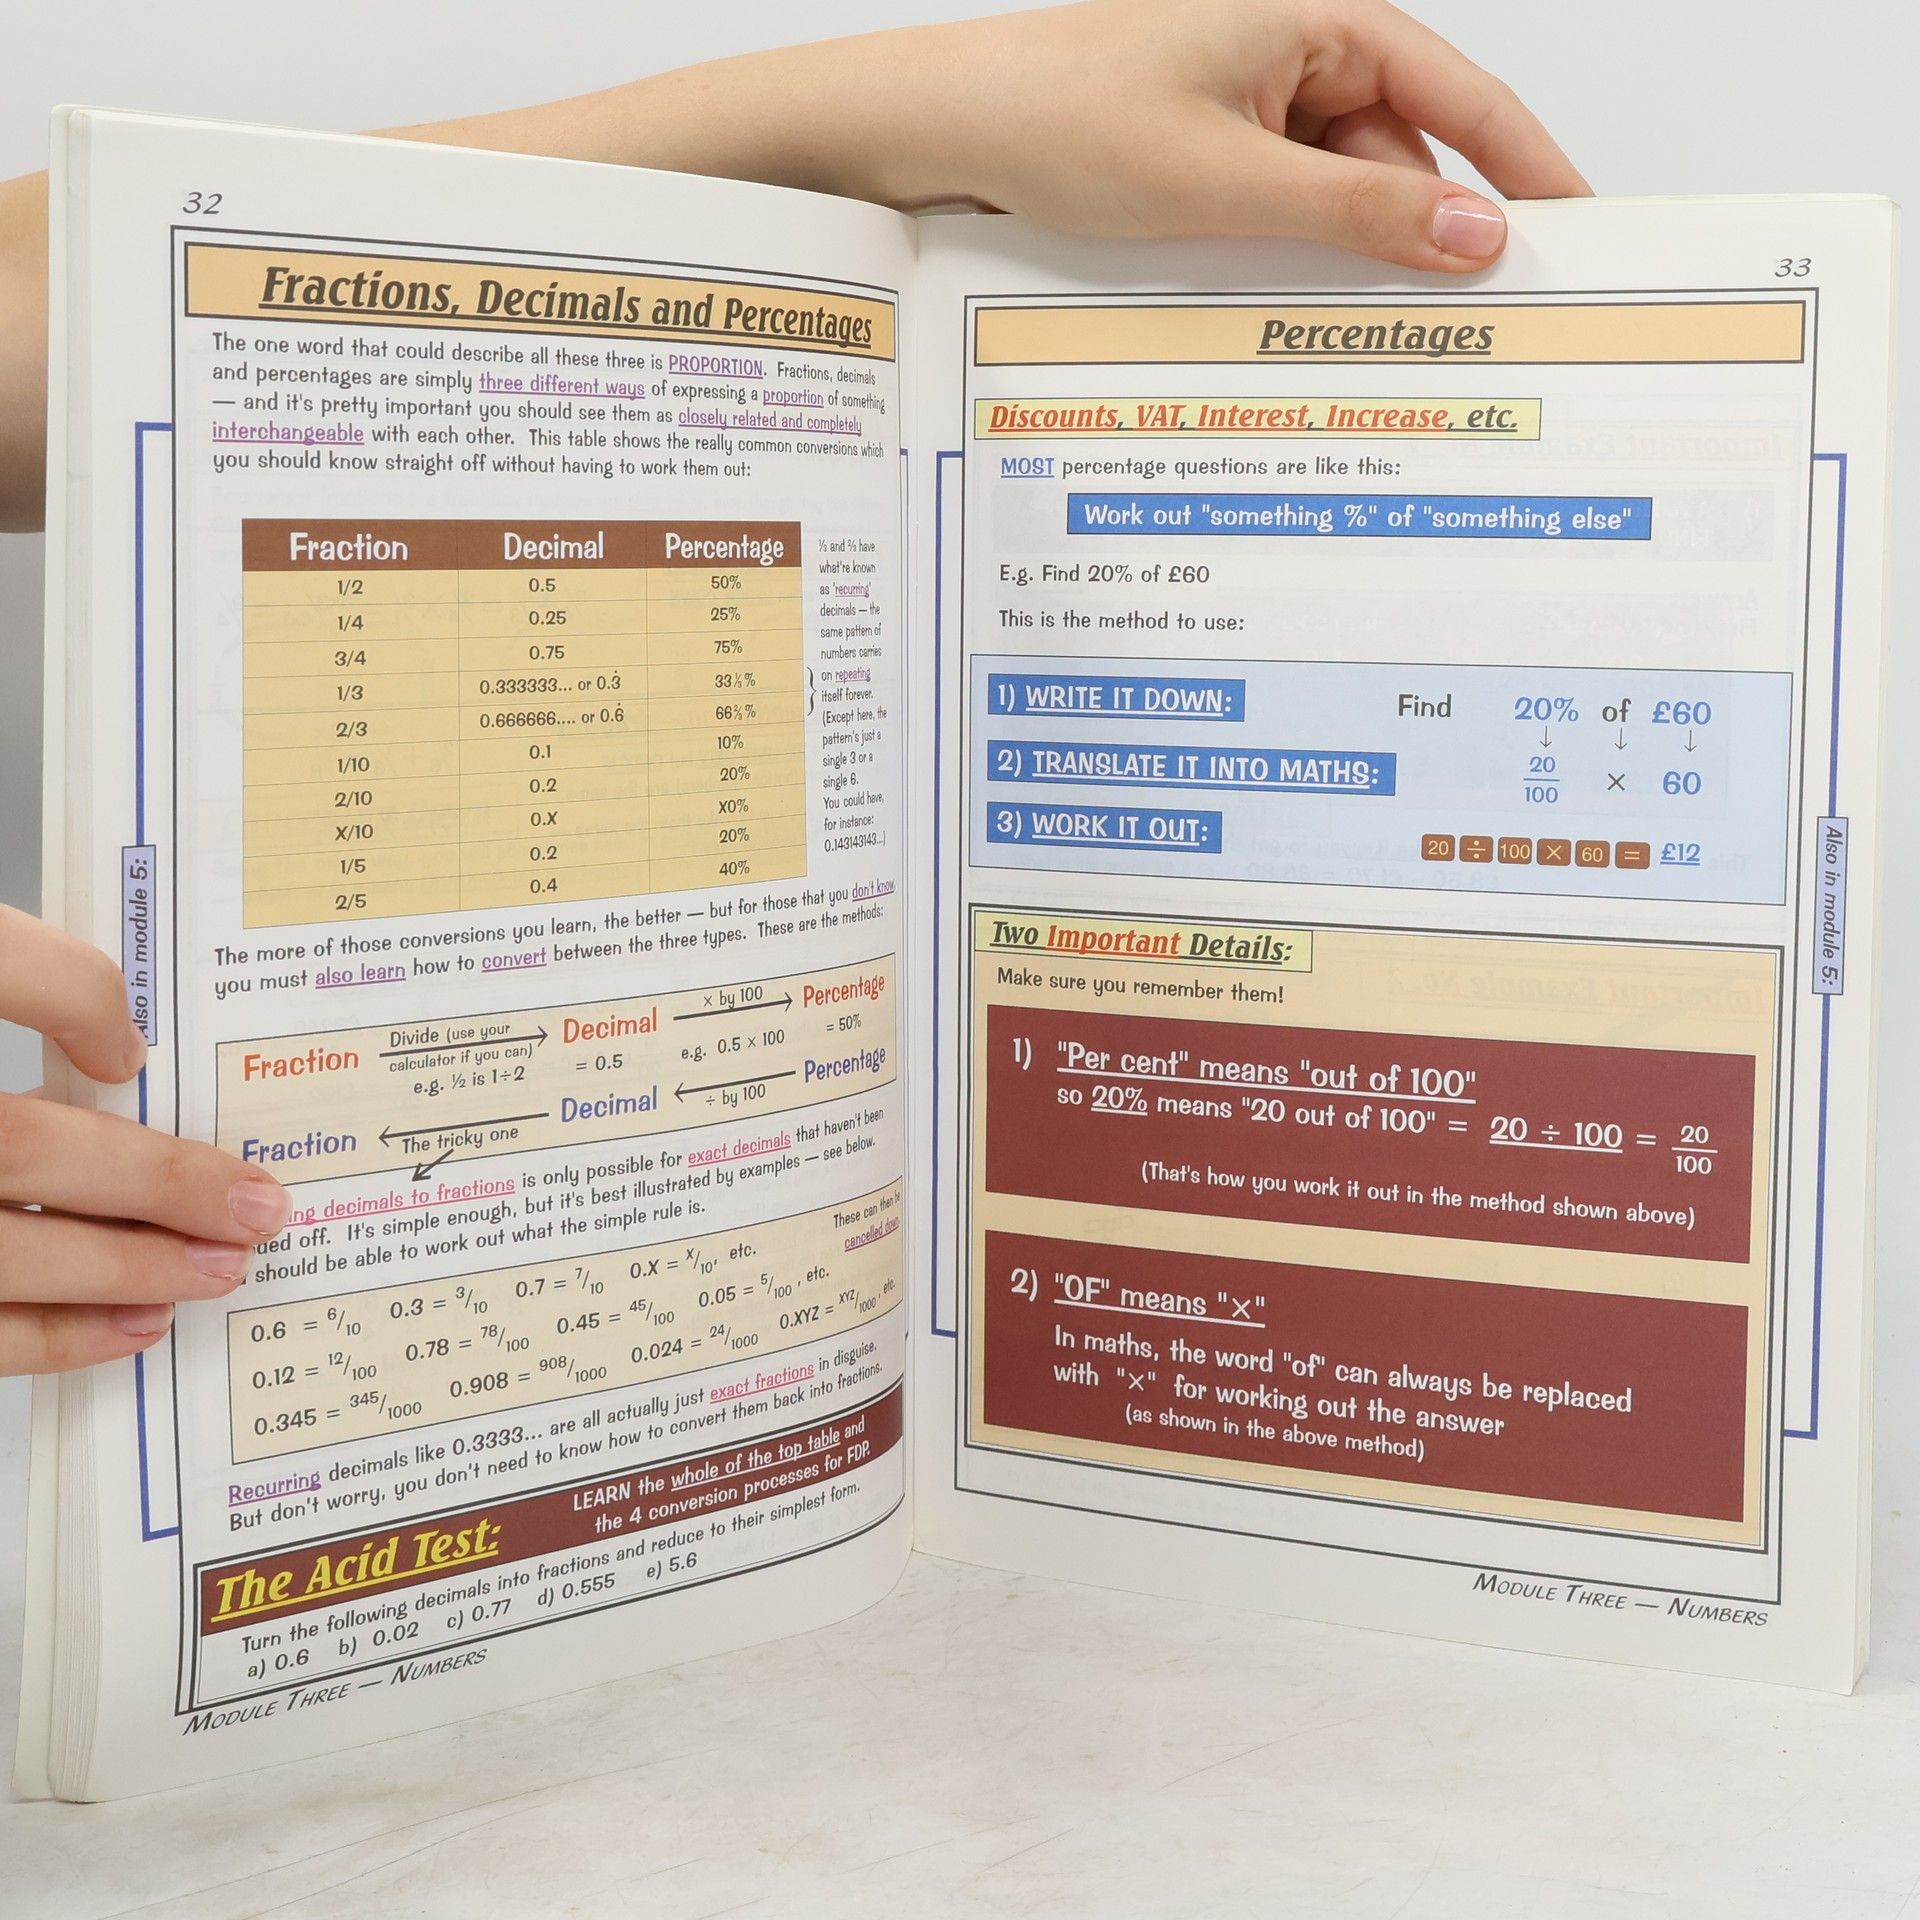 32
Fractions, Decimals and Percentages
The one word that could describe all these three is PROPORTION. Fractions, decimals
and percentages are simply three different ways of expressing a proportion of something
— and it's pretty important you should see them as closely related and completely
interchangeable with each other. This table shows the really common conversions which
you should know straight off without having to work them out:
Fraction Decimal Percentage
1/2 0.5 50%
1/4 0.25 25%
3/4 0.75 75%
1/3 0.333333... or 0.3̇ 33⅓%
2/3 0.666666.... or 0.6̇ 66⅔%
1/10 0.1 10%
2/10 0.2 20%
X/10 0.X X0%
1/5 0.2 20%
2/5 0.4 40%
⅓ and ⅔ have
what're known
as 'recurring'
decimals — the
same pattern of
numbers carries
on repeating
itself forever.
(Except here, the
pattern's just a
single 3 or a
single 6.
You could have,
for instance:
0.143143143...)
The more of those conversions you learn, the better — but for those that you don't know,
you must also learn how to convert between the three types. These are the methods:
Fraction Divide (use your calculator if you can) Decimal × by 100 Percentage
e.g. ½ is 1÷2 = 0.5 e.g. 0.5 × 100 = 50%
Fraction The tricky one Decimal ÷ by 100 Percentage
decimals to fractions is only possible for exact decimals that haven't been
off. It's simple enough, but it's best illustrated by examples — see below.
should be able to work out what the simple rule is.
These can then be
cancelled down.
0.6 = 6/10 0.3 = 3/10 0.7 = 7/10 0.X = X/10, etc.
0.12 = 12/100 0.78 = 78/100 0.45 = 45/100 0.05 = 5/100, etc.
0.345 = 345/1000 0.908 = 908/1000 0.024 = 24/1000 0.XYZ = XYZ/1000, etc.
Recurring decimals like 0.3333... are all actually just exact fractions in disguise.
But don't worry, you don't need to know how to convert them back into fractions.
The Acid Test:
LEARN the whole of the top table and
the 4 conversion processes for FDP.
Turn the following decimals into fractions and reduce to their simplest form.
a) 0.6 b) 0.02 c) 0.77 d) 0.555 e) 5.6
Module Three — Numbers
Also in module 5:
33
Percentages
Discounts, VAT, Interest, Increase, etc.
MOST percentage questions are like this:
Work out "something %" of "something else"
E.g. Find 20% of £60
This is the method to use:
1) WRITE IT DOWN: Find 20% of £60
↓ ↓ ↓
2) TRANSLATE IT INTO MATHS: 20/100 × 60
3) WORK IT OUT: 20 ÷ 100 × 60 = £12
Two Important Details:
Make sure you remember them!
1) "Per cent" means "out of 100"
so 20% means "20 out of 100" = 20 ÷ 100 = 20/100
(That's how you work it out in the method shown above)
2) "OF" means "×"
In maths, the word "of" can always be replaced
with "×" for working out the answer
(as shown in the above method)
Also in module 5:
Module Three — Numbers